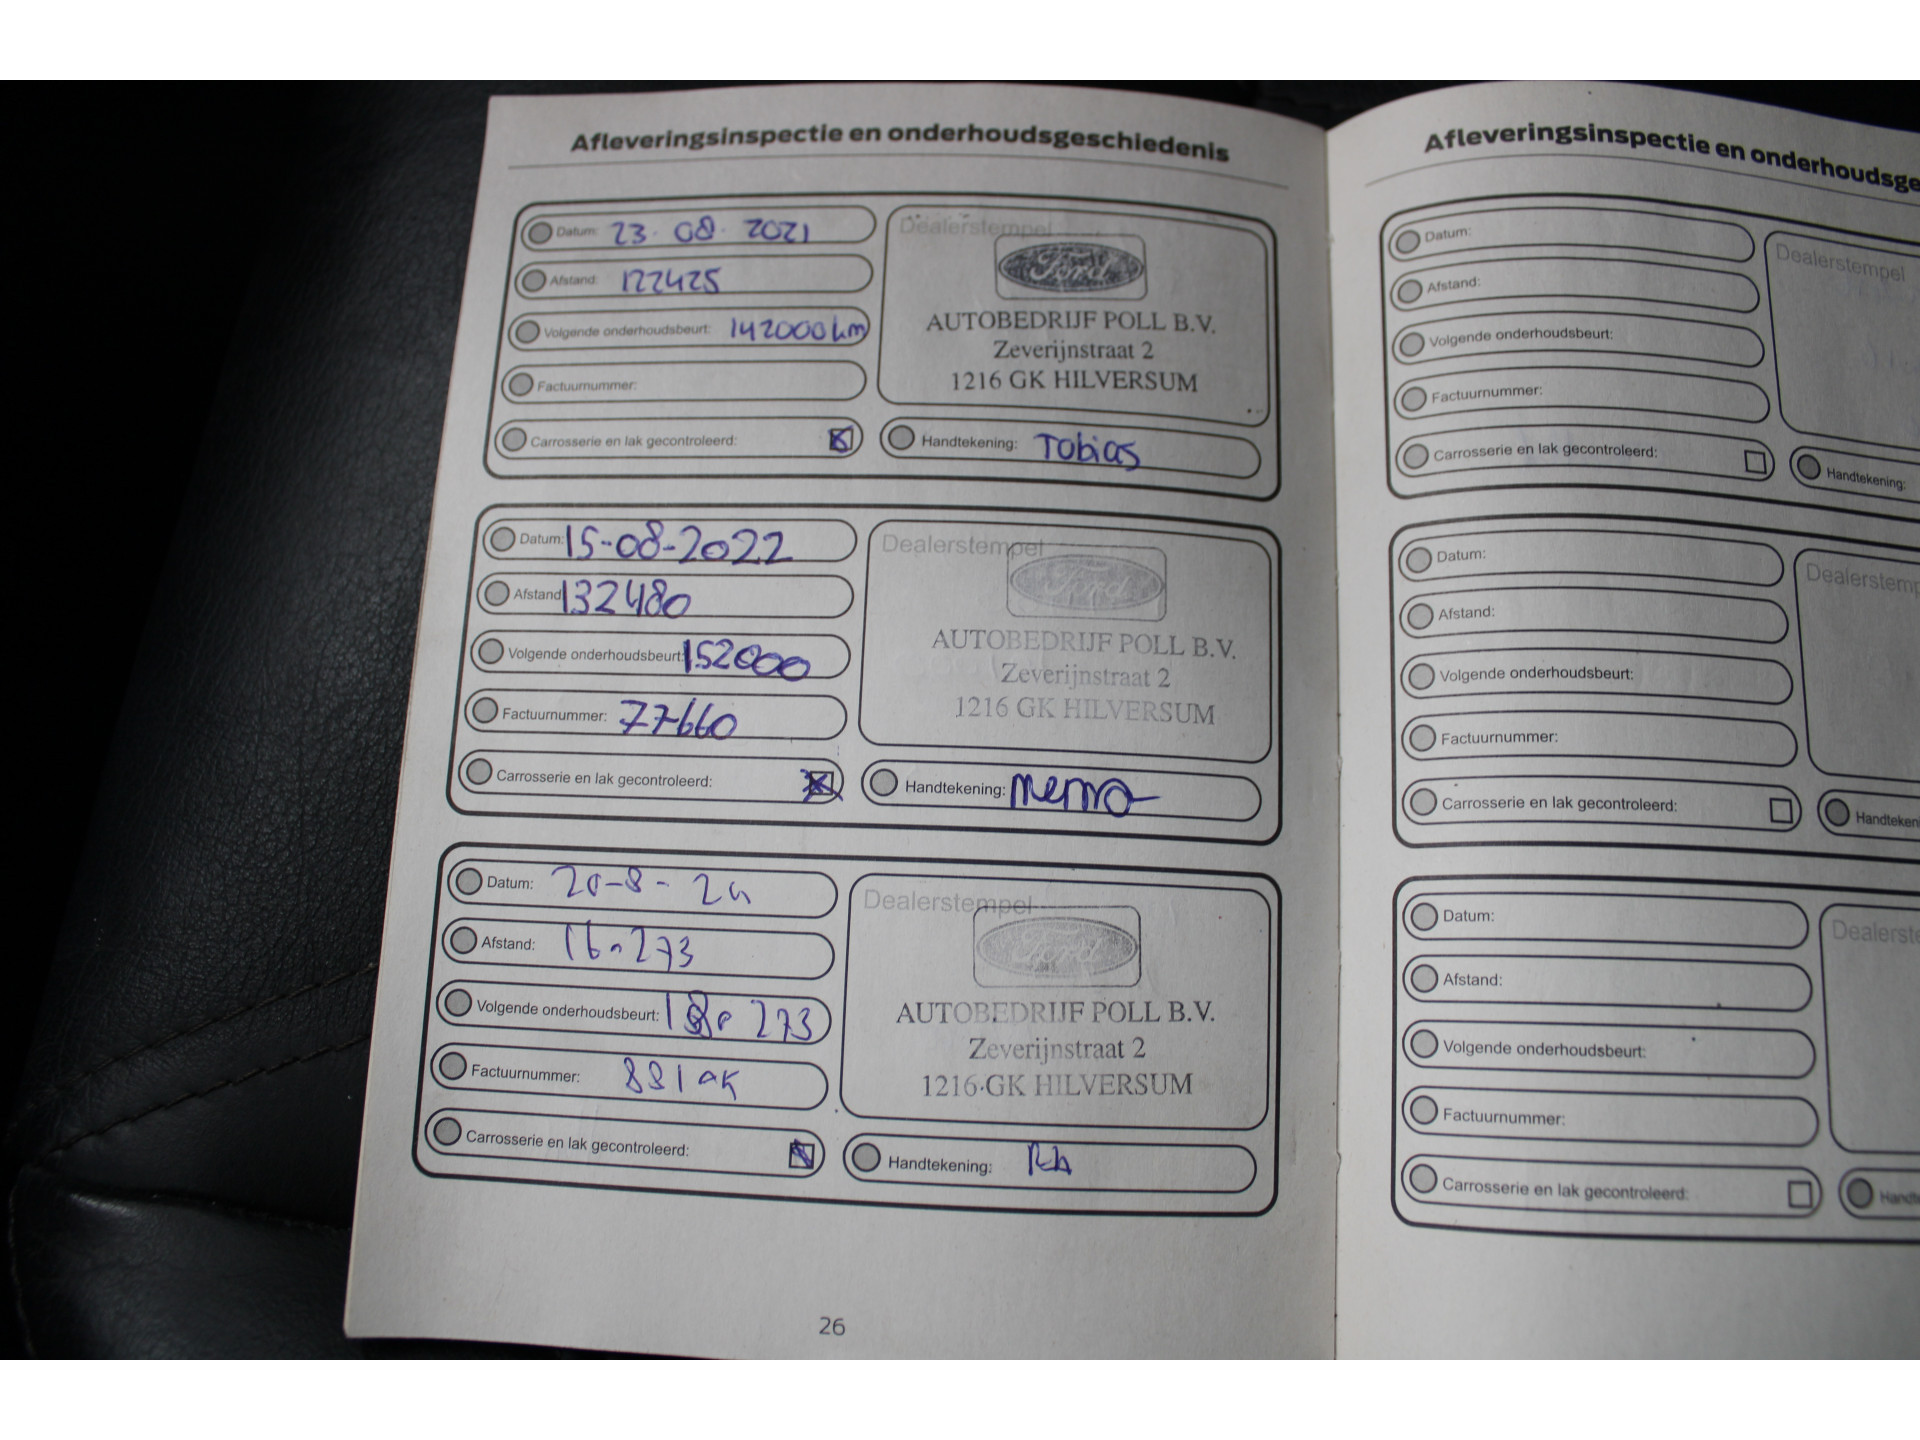 Afleveringsinspectie en onderhoudsgeschiedenis
Datum: 23-08-2021
Afstand: 122425
Volgende onderhoudsbeurt: 142000km
Factuurnummer:
Carrosserie en lak gecontroleerd:
Dealerstempel
Ford
AUTOBEDRIJF POLL B.V.
Zeverijnstraat 2
1216 GK HILVERSUM
Handtekening: Tobias
Datum: 15-08-2022
Afstand: 132480
Volgende onderhoudsbeurt: 152000
Factuurnummer: 77660
Carrosserie en lak gecontroleerd:
Dealerstempel
Ford
AUTOBEDRIJF POLL B.V.
Zeverijnstraat 2
1216 GK HILVERSUM
Handtekening: Memo
Datum: 20-8-24
Afstand: 160273
Volgende onderhoudsbeurt: 180273
Factuurnummer:
Carrosserie en lak gecontroleerd:
Dealerstempel
Ford
AUTOBEDRIJF POLL B.V.
Zeverijnstraat 2
1216 GK HILVERSUM
Handtekening:
26
Afleveringsinspectie en onderhoudsge
Datum:
Afstand:
Volgende onderhoudsbeurt:
Factuurnummer:
Carrosserie en lak gecontroleerd:
Dealerstempel
Handtekening:
Datum:
Afstand:
Volgende onderhoudsbeurt:
Factuurnummer:
Carrosserie en lak gecontroleerd:
Dealerstemp
Handteken
Datum:
Afstand:
Volgende onderhoudsbeurt:
Factuurnummer:
Carrosserie en lak gecontroleerd:
Dealerste
Handte